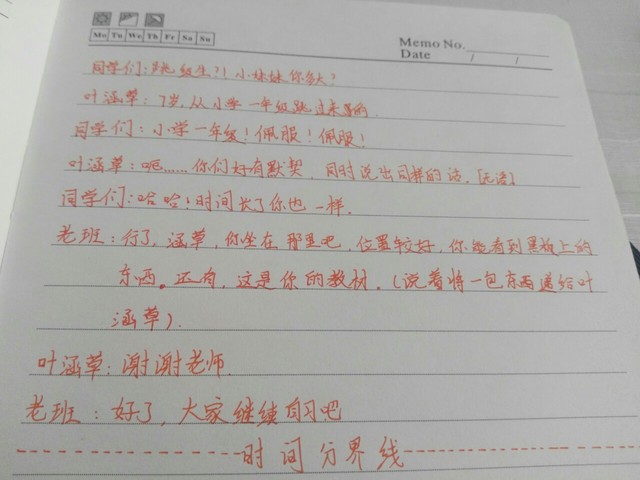 Mo Tu We Th Fr Sa Su
Memo No.
Date / /
同学们:跳级生?!小妹妹你多大?
叶涵草:7岁,从小学一年级跳过来的.
同学们:小学一年级!佩服!佩服!
叶涵草:呃……你们好有默契,同时说出同样的话.[无语]
同学们:哈哈!时间长了你也一样.
老班:行了,涵草,你坐在那里吧,位置较好,你能看到黑板上的
东西。还有,这是你的教材。(说着将一包东西递给叶
涵草).
叶涵草:谢谢老师.
老班:好了,大家继续自习吧
时间分界线